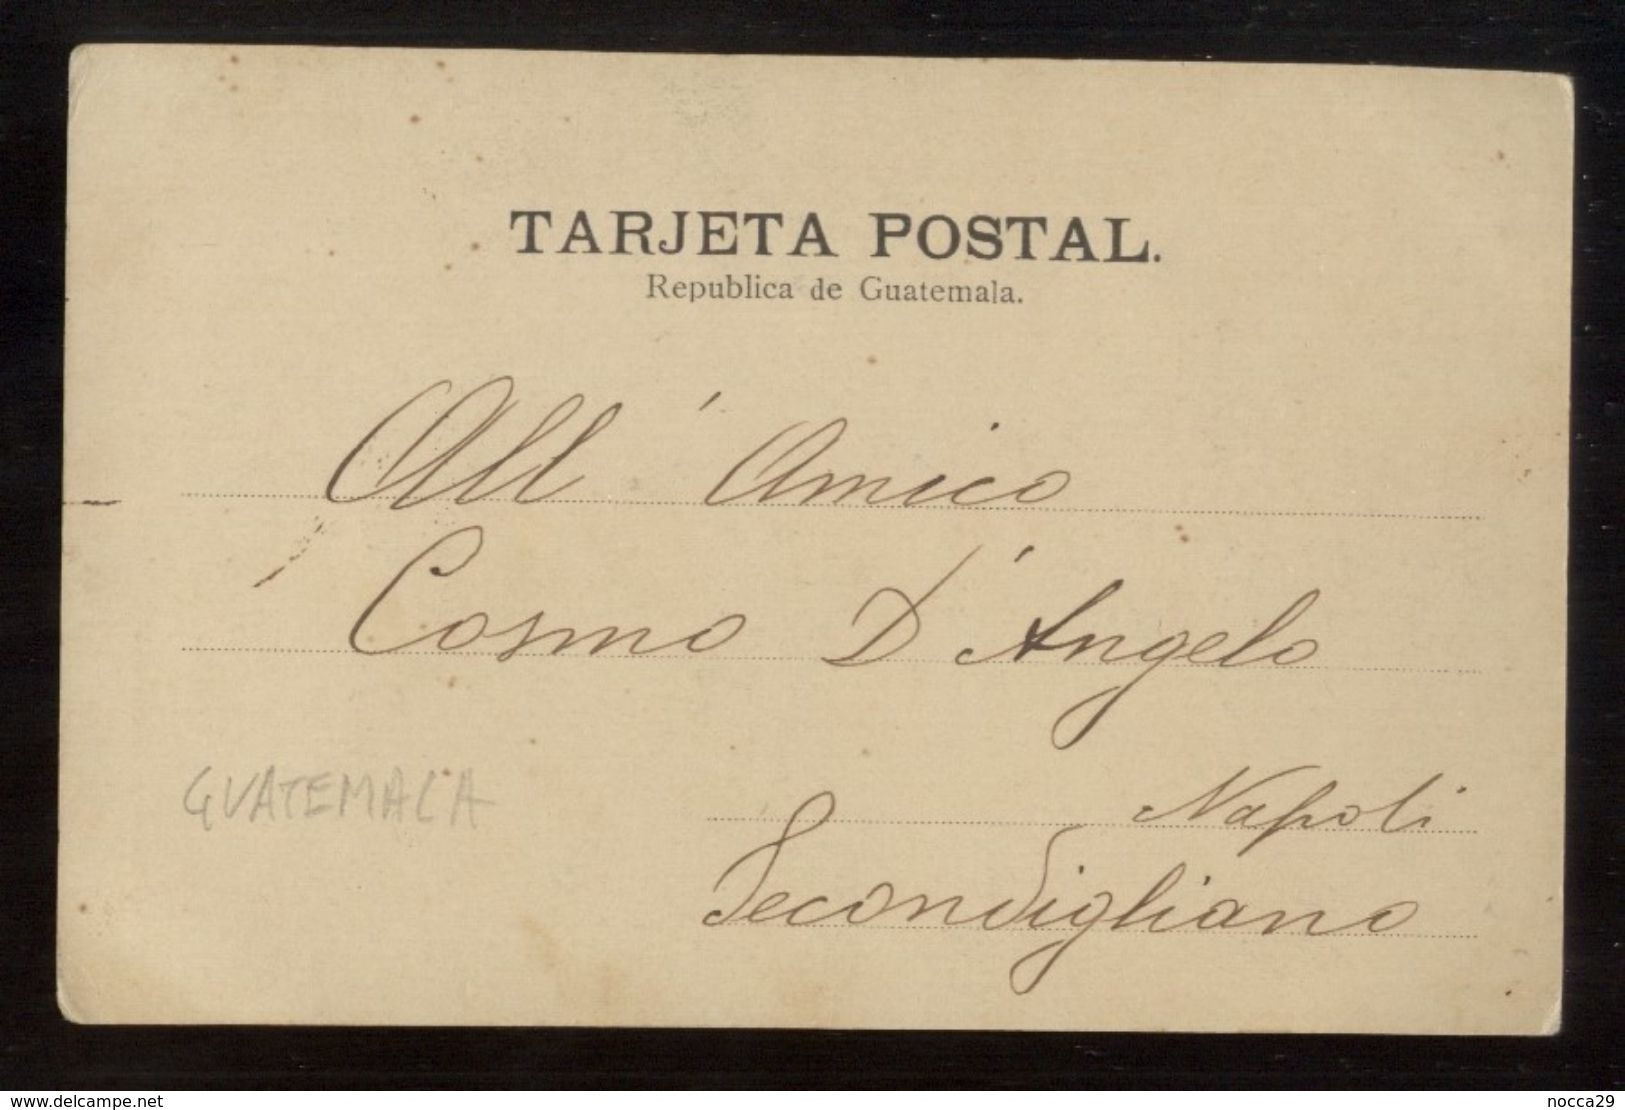 TARJETA POSTAL.
Republica de Guatemala.
All' Amico
Cosmo D'Angelo
Napoli
Secondigliano
GUATEMALA
www.delcampe.net
nocca29